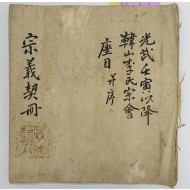 光武壬寅以降
韓山李氏宗會
座目 并序
宗義契冊